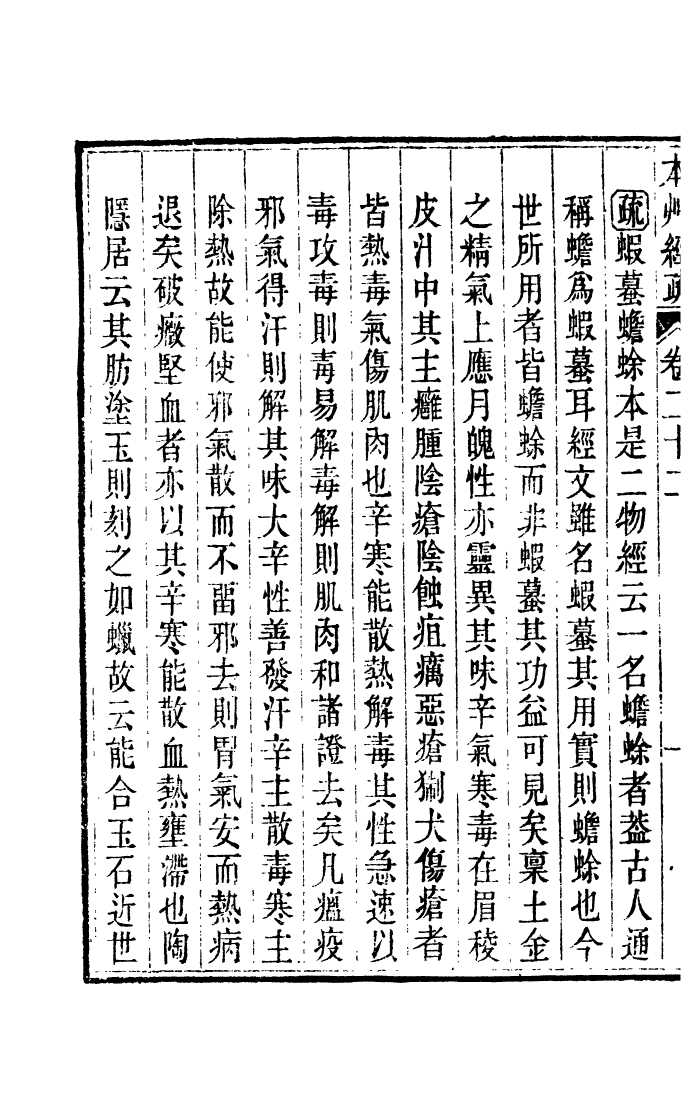 本草經疏 卷二十二 一
疏蝦蟇蟾蜍本是二物經云一名蟾蜍者葢古人通
稱蟾爲蝦蟇耳經文雖名蝦蟇其用實則蟾蜍也今
世所用者皆蟾蜍而非蝦蟇其功益可見矣稟土金
之精氣上應月魄性亦靈異其味辛氣寒毒在眉稜
皮汁中其主癰腫陰瘡陰蝕疽癘惡瘡猘犬傷瘡者
皆熱毒氣傷肌肉也辛寒能散熱解毒其性急速以
毒攻毒則毒易解毒解則肌肉和諸證去矣凡瘟疫
邪氣得汗則解其味大辛性善發汗辛主散毒寒主
除熱故能使邪氣散而不畱邪去則胃氣安而熱病
退矣破癥堅血者亦以其辛寒能散血熱壅滯也陶
隱居云其肪塗玉則刻之如蠟故云能合玉石近世